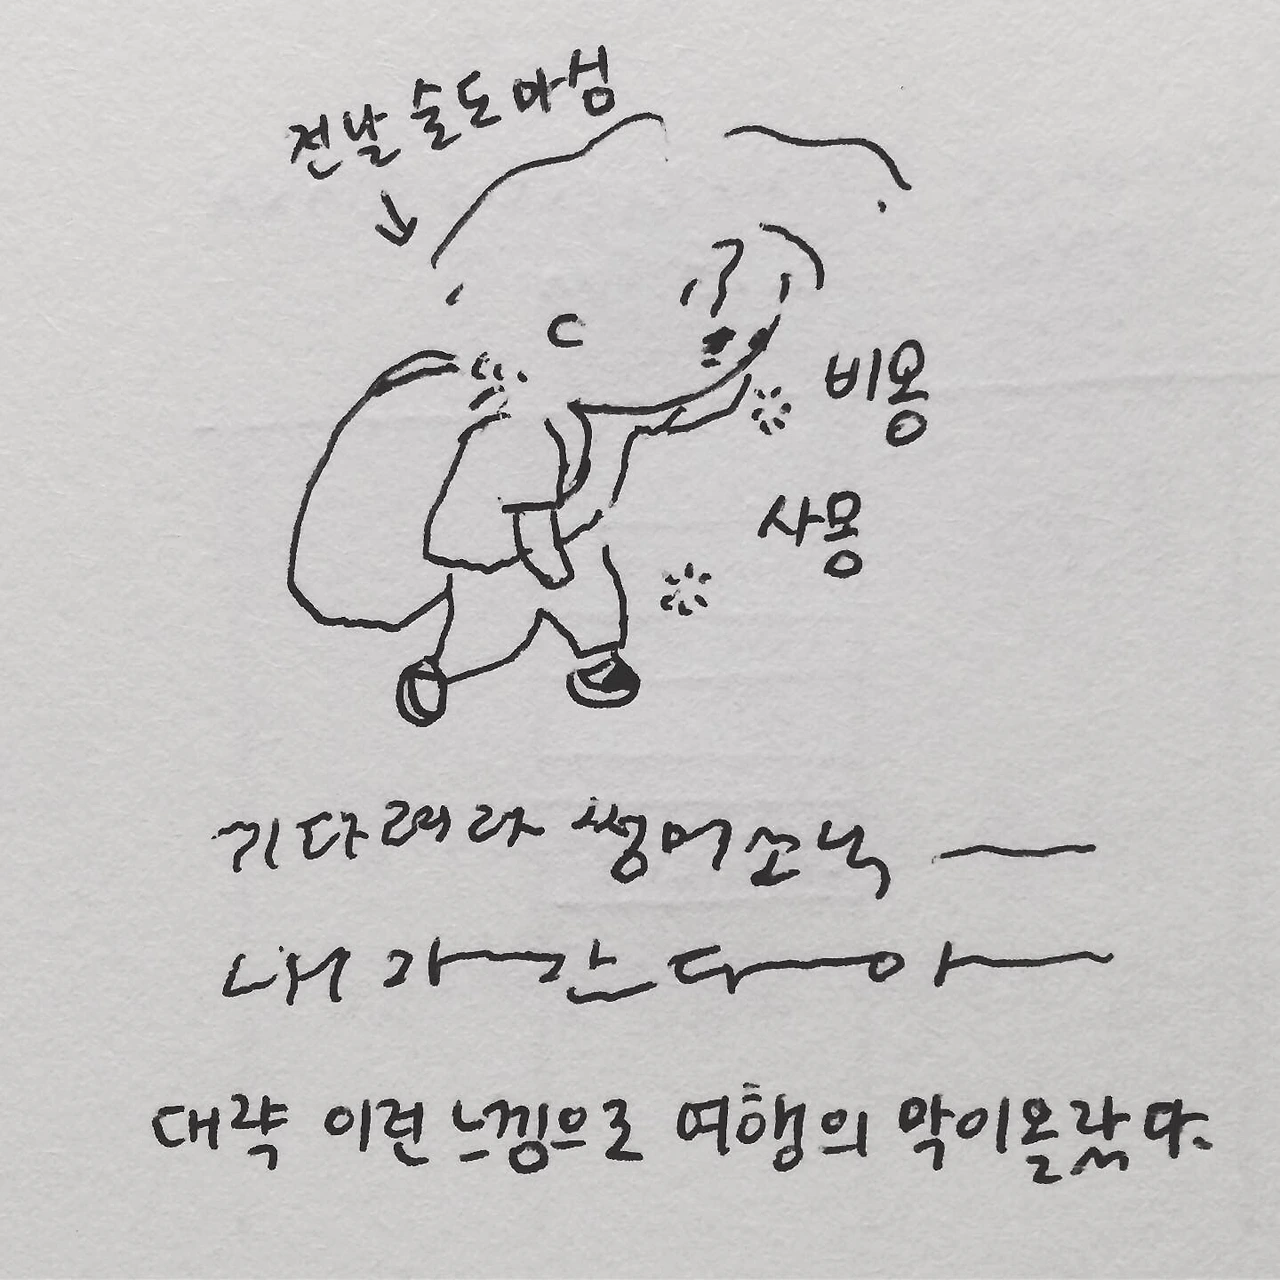 전날 술도 마심
비몽
사몽
기다려라 썽머소닉 ——
내가— 간다—아—
대략 이런 느낌으로 여행의 막이 올랐다.